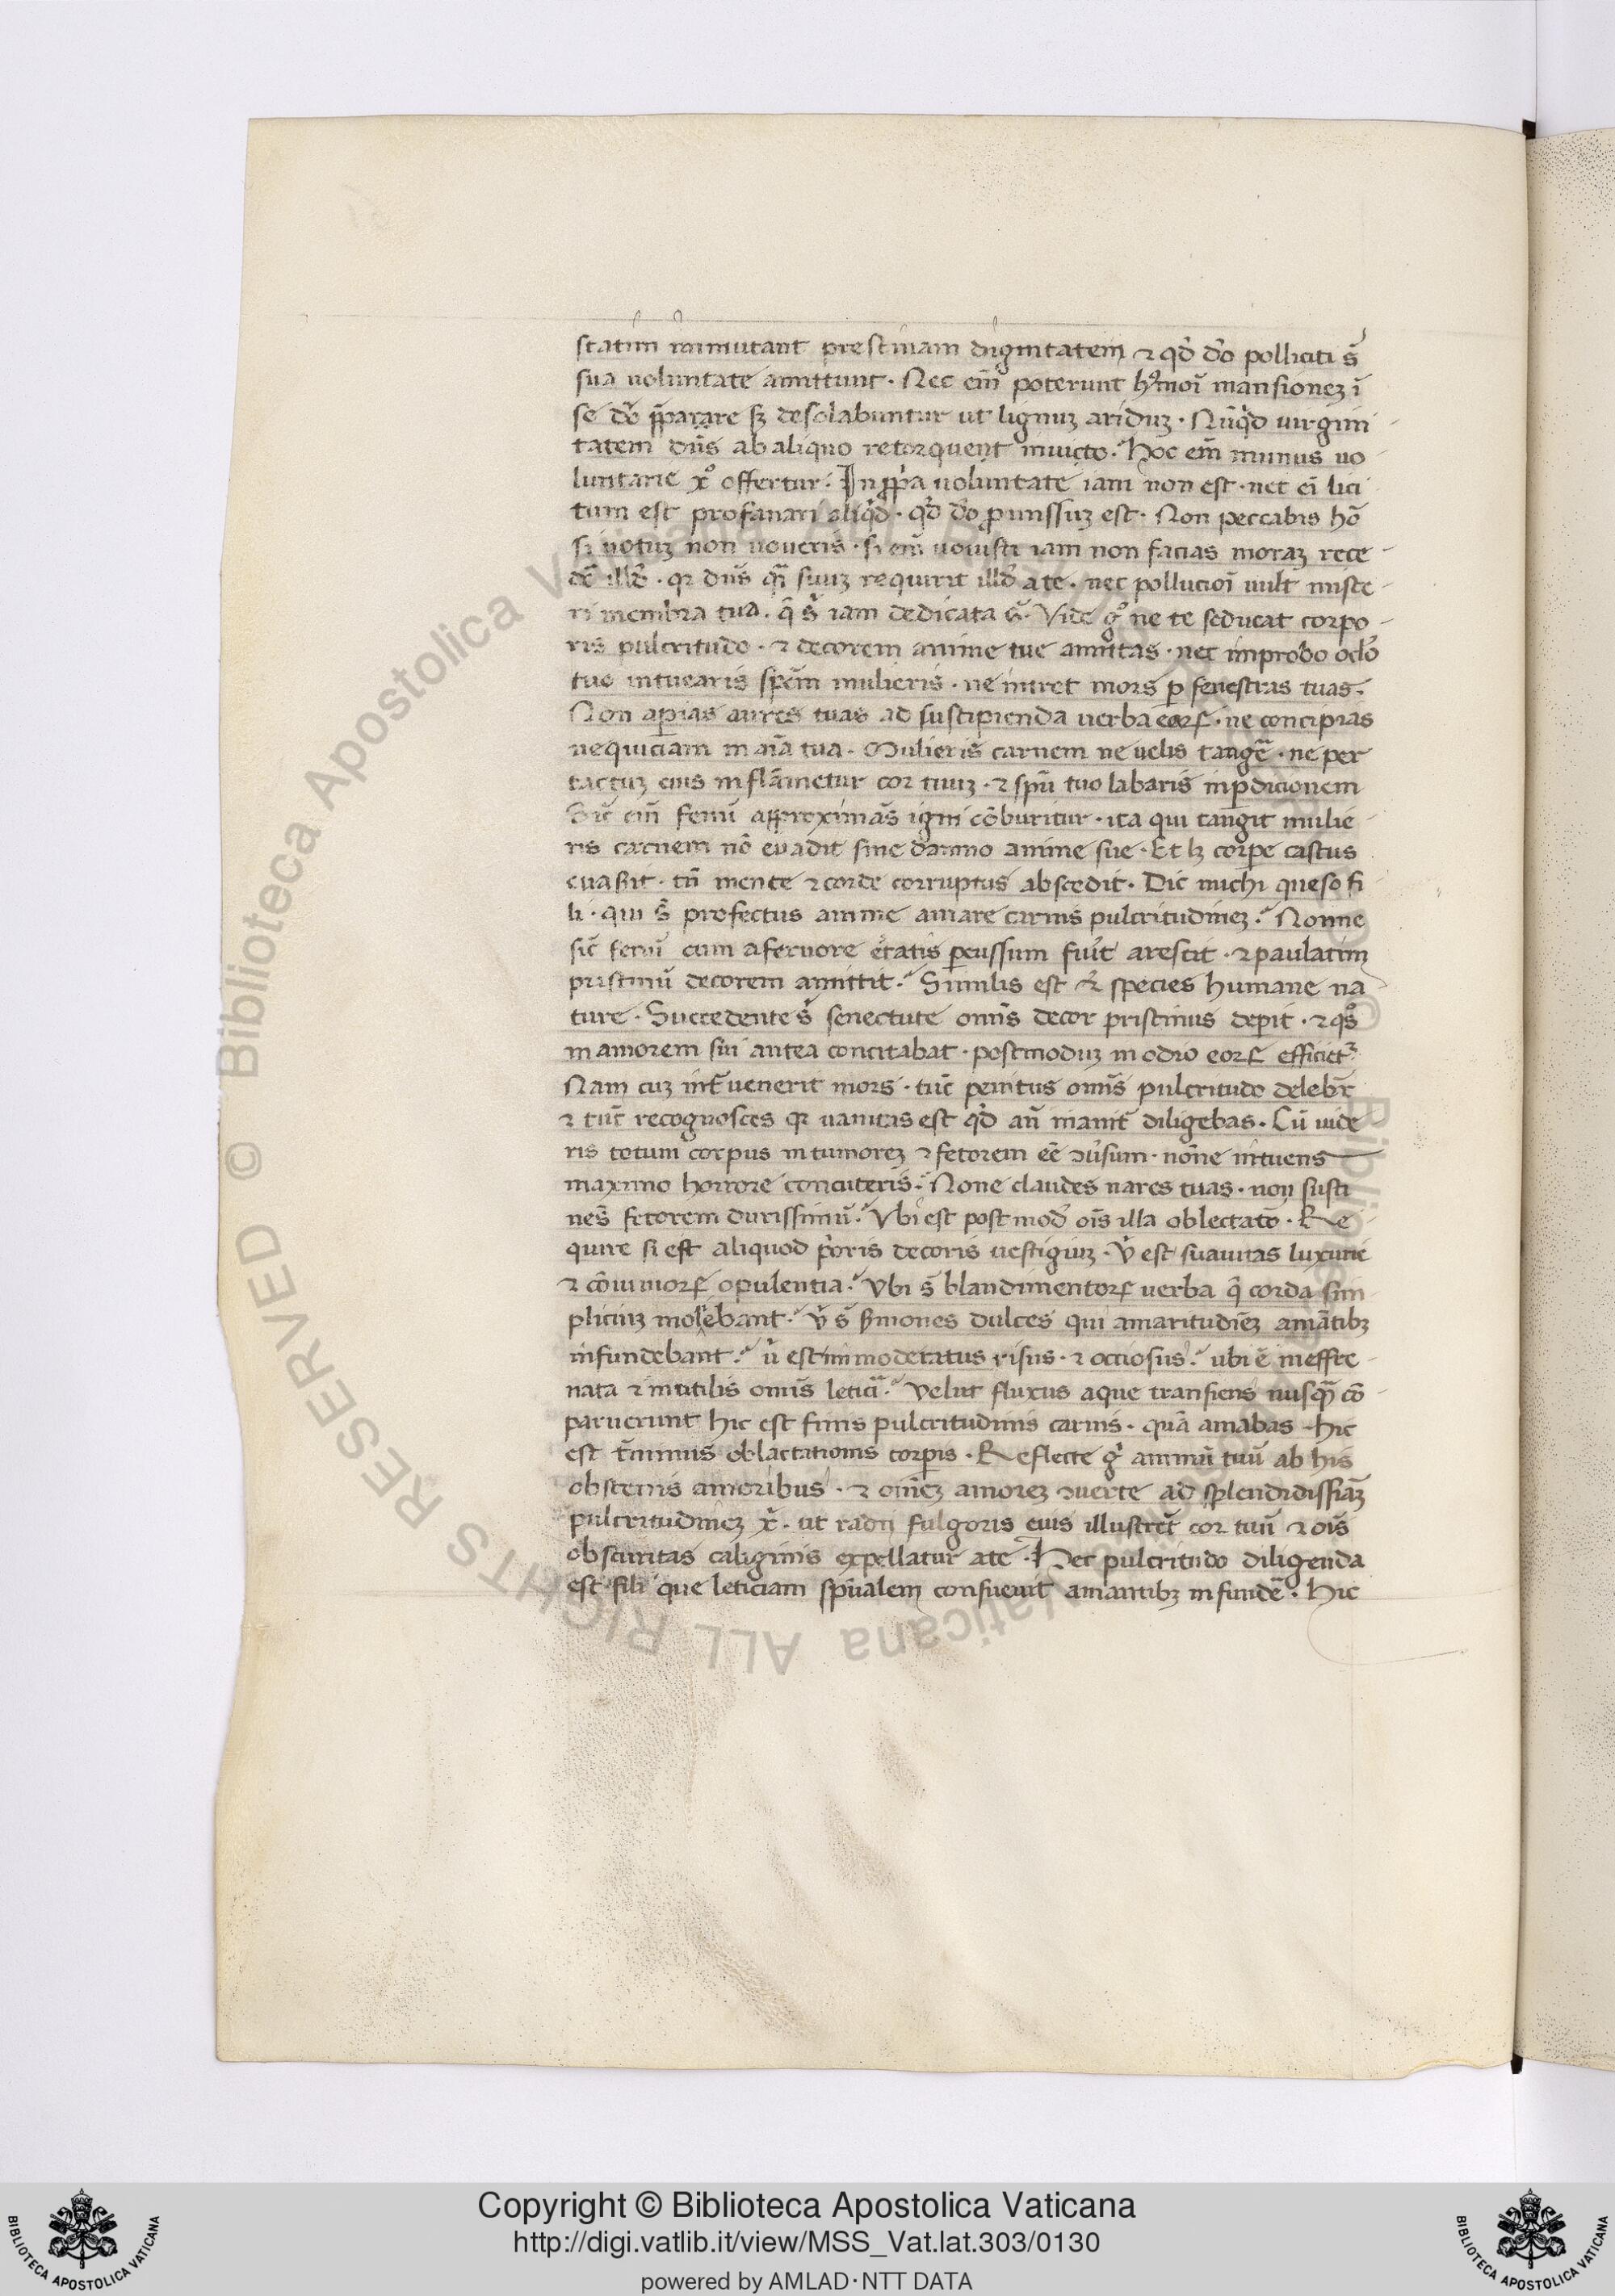 statim inmutant prestinam dignitatem ⁊ qđ đo polliciti s̄
sua uoluntate amittunt · Nec eni̅ poterunt hꝰmoi̅ mansioneꝫ i̅
se đo p̄parare sꝫ desolabuntur ut lignuꝫ ariduꝫ · Nu̅qđ uirgini
tatem dn̅s ab aliquo retorquent inuicto · Hoc em̅ munus uo
luntarie xo offertur · In pp̃a uoluntate iam non est · nec ei̅ lici
tum est profanari aliqđ · qđ đo ꝓmissuꝫ est · Non peccabis ho̅
si uotuꝫ non uoueris · si em̅ uouisti iam non facias moraꝫ rece
de̅ illđ · qꝛ dn̅s q̅i suuꝫ requirit illđ a te · nec pollucioi̅ uult misce
ri membra tua · q̅ s̄ iam dedicata s̄ · Vide gͦ ne te seducat corpo
ris pulcritudo · ⁊ decorem anime tue amittas · nec improbo oclo̅
tuo intuearis spe̅m mulieris · ne intret mors ꝑ fenestras tuas ·
Non aperias aures tuas ad suscipienda uerba eorꝝ · ne concipias
nequiciam in ai̅a tua · Mulieris carnem ne uelis tange̅ · ne per
tactuꝫ eius infla̅metur cor tuuꝫ · ⁊ spu̅ tuo labaris in ꝑdicionem
Sic̅ em̅ fenu̅ approxima̅s igni co̅buritur · ita qui tangit mulie
ris carnem no̅ euadit sine damno anime sue · Et lꝫ corpe castus
euasit · tn̅ mente ⁊ corde corruptus abscedit · Dic michi queso fi
li · qui s̄ profectus anime amare carnis pulcritudineꝫ · Nonne
sic̅ fenu̅ cum a feruore etatis ꝑcussum fui̅t arescit · ⁊ paulatim
pristinu̅ decorem amittit · Similis est ⁊ species humane na
ture · Succedente s̄ senectute omi̅s decor pristinus depit · ⁊ qͦs
in amorem sui antea concitabat · postmoduꝫ in odio eorꝝ efficiet᷑
Nam cuꝫ int̅uenerit mors · tuc̅ penitus omi̅s pulcritudo delebr̅
⁊ tuc̅ recognosces qꝛ uanitas est qđ an̅ inanit̅ diligebas · Cu̅ uide
ris totum corpus in tumoreꝫ ⁊ fetorem ee̅ ꝯuersum · no̅ne intuens
maximo horrore concuteris · None claudes nares tuas · non susti
nes̅ fetorem durissimu̅ · Vbi est post mod̅ ois̅ illa oblectato̅ · Re
quire si est aliquod p̓oris decoris uestigiuꝫ · V̓ est suauitas luxurie
⁊ co̅uiuiorꝝ opulentia · Vbi s̄ blandimentorꝝ uerba q̅ corda sim
pliciuꝫ molebant · V̓ s̄ s̓mones dulces qui amaritudie̅ꝫ ama̅tibꝫ
infundebant · u̓ est inmoderatus risus · ⁊ occiosus · ubi e̅ ineffre
nata ⁊ inutilis omi̅s leticia · Velut fluxus aque transiens nusqᷓ co̅
paruerunt hic est finis pulcritudinis carnis · qua̅ amabas · hic
est t̅minus oblactationis corpis · Reflecte gͦ animu̅ tuu̅ ab his
obscenis amoribus · ⁊ omne̅ꝫ amoreꝫ ꝯuerte ad splendidissi̅aꝫ
pulcritudineꝫ x̓ · ut radii fulgoris eius illustre̅t cor tuu̅ ⁊ ois̅
obscuritas caliginis expellatur a te · Hec pulcritudo diligenda
est fili que leticiam spu̅alem consueuit amantibꝫ infunde̅ · Hic
Copyright © Biblioteca Apostolica Vaticana
http://digi.vatlib.it/view/MSS_Vat.lat.303/0130
powered by AMLAD·NTT DATA
BIBLIOTECA APOSTOLICA VATICANA
BIBLIOTECA APOSTOLICA VATICANA